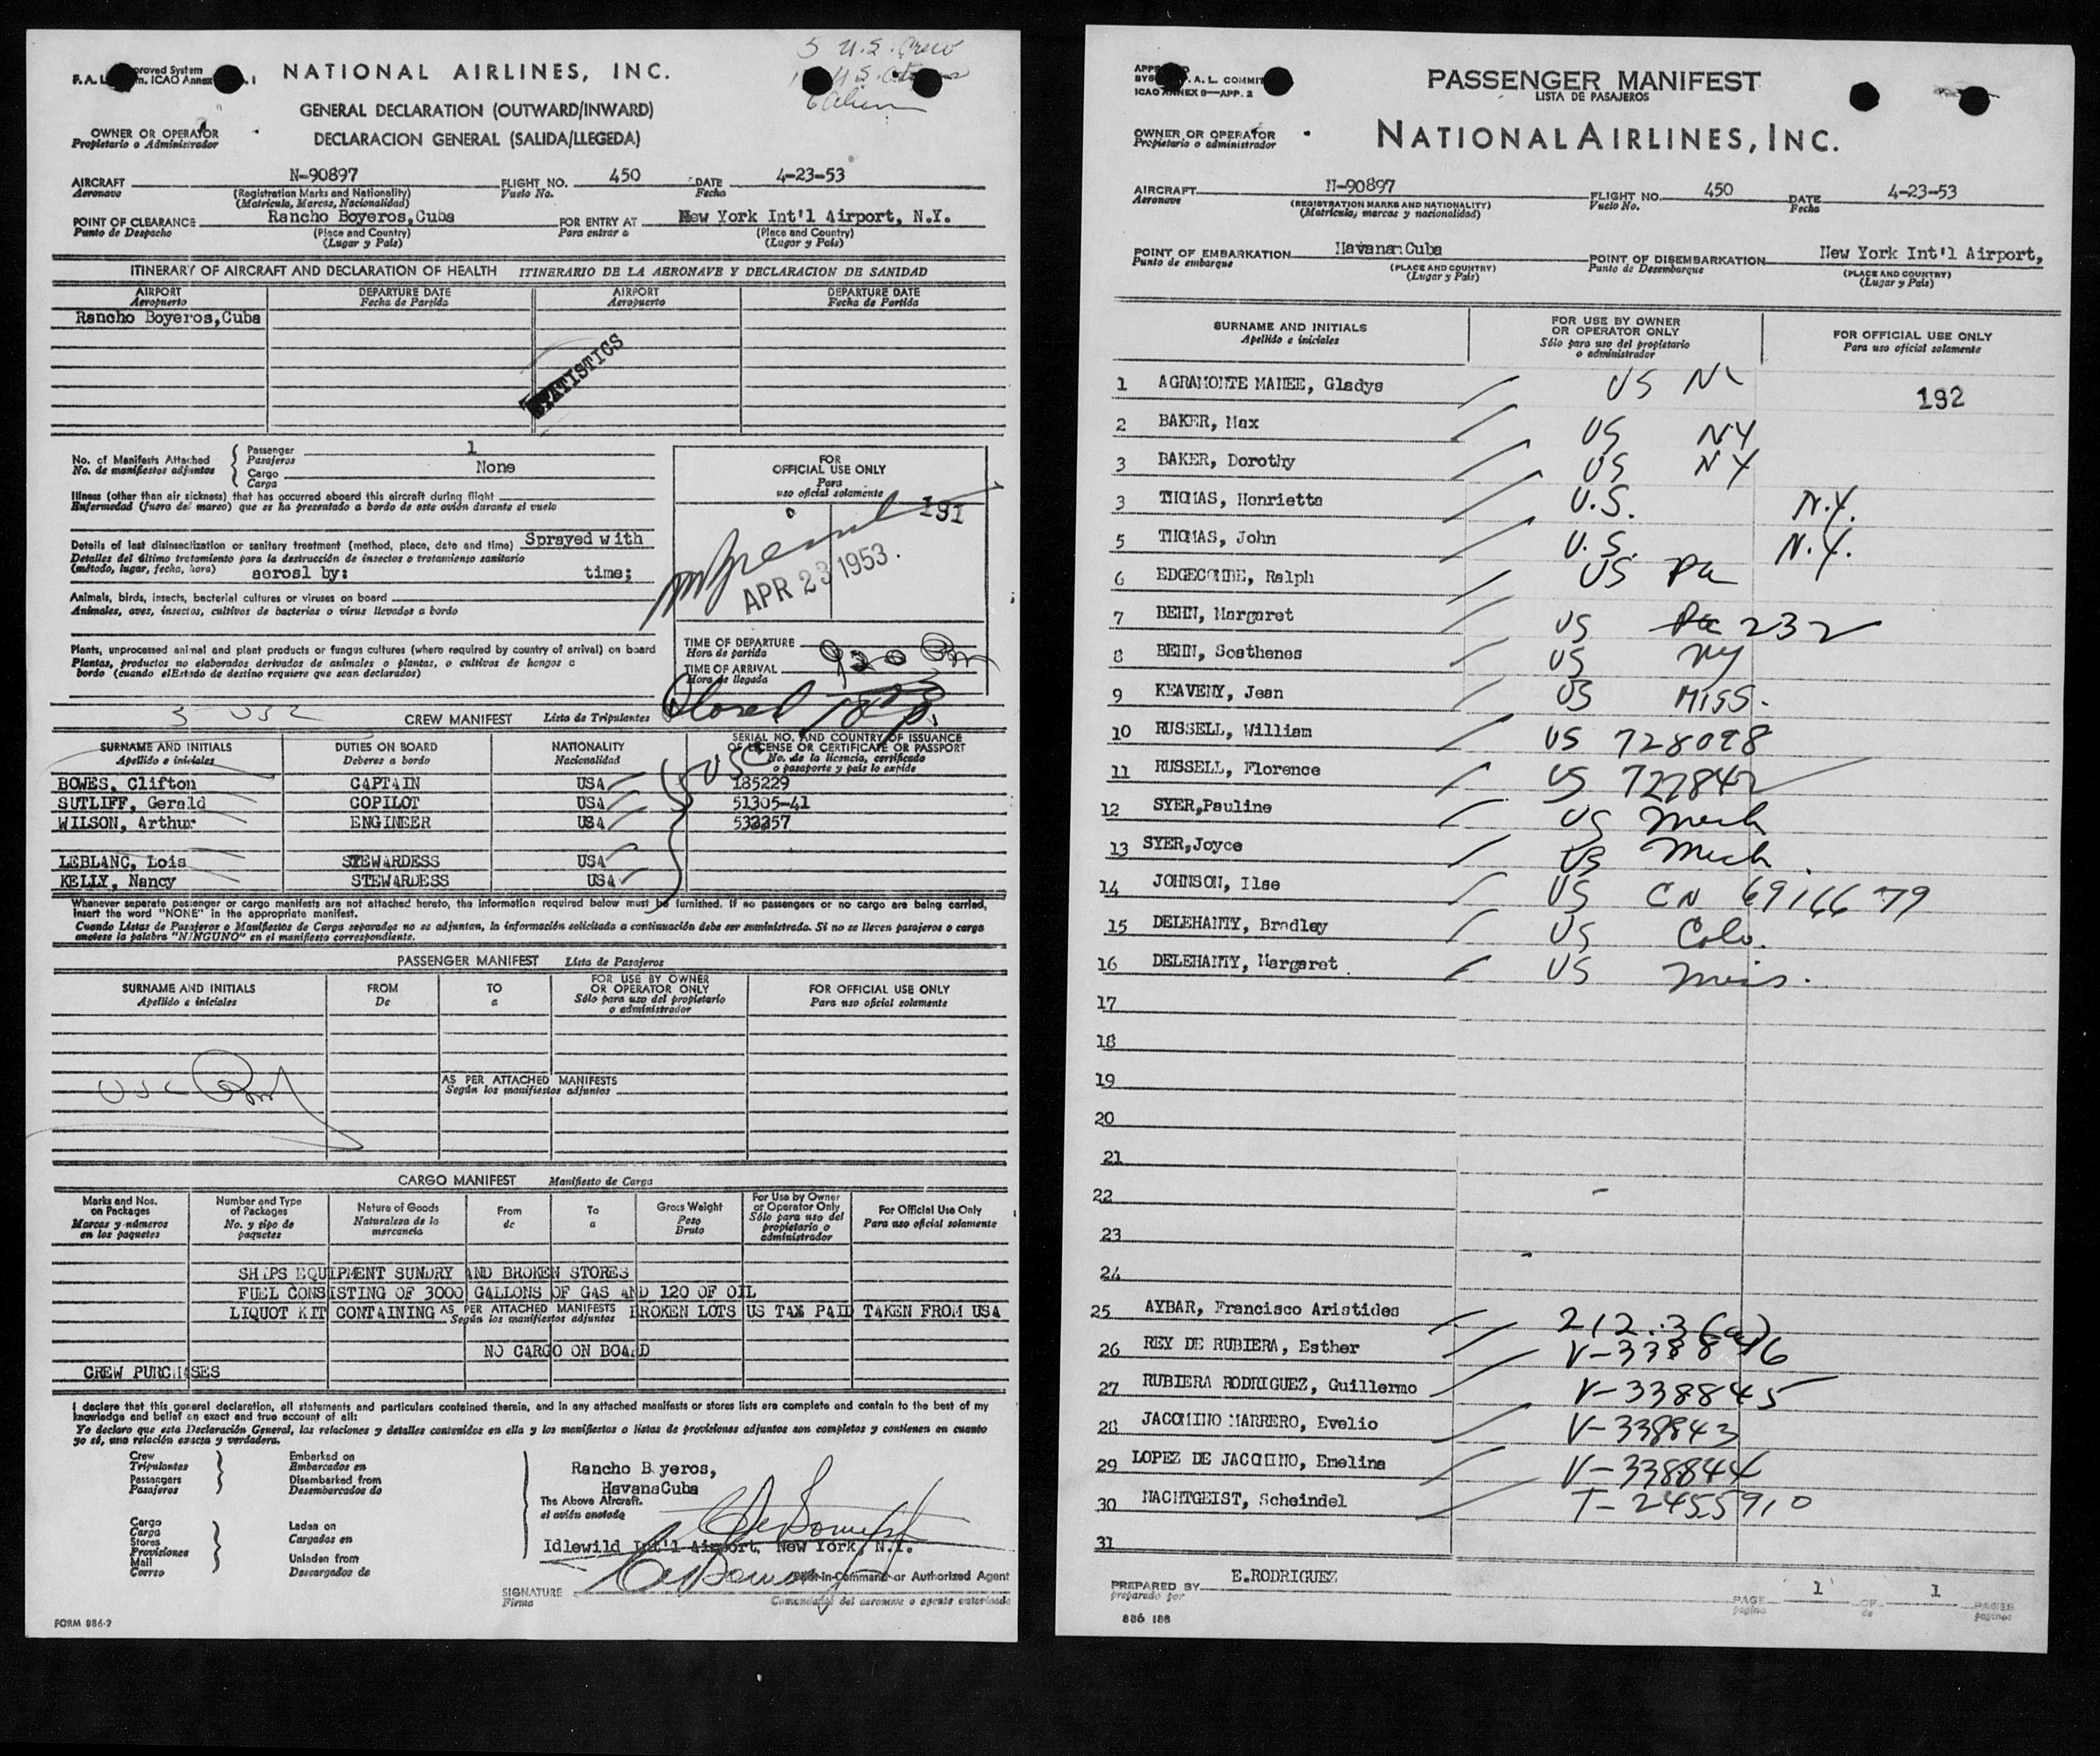 5 U.S. Crew
U.S. Citizens
6 Alien
NATIONAL AIRLINES, INC.
GENERAL DECLARATION (OUTWARD/INWARD)
DECLARACION GENERAL (SALIDA/LLEGEDA)
OWNER OR OPERATOR
Propietario o Administrador
AIRCRAFT N-90897 FLIGHT NO. 450 DATE 4-23-53
Aeronave (Registration Marks and Nationality) Vuelo No. Fecha
(Matricula, Marcas, Nacionalidad)
POINT OF CLEARANCE Rancho Boyeros,Cuba FOR ENTRY AT New York Int'l Airport, N.Y.
Punto de Despacho (Place and Country) Para entrar a (Place and Country)
(Lugar y País) (Lugar y País)
ITINERARY OF AIRCRAFT AND DECLARATION OF HEALTH ITINERARIO DE LA AERONAVE Y DECLARACION DE SANIDAD
AIRPORT DEPARTURE DATE AIRPORT DEPARTURE DATE
Aeropuerto Fecha de Partida Aeropuerto Fecha de Partida
Rancho Boyeros,Cuba
STATISTICS
No. of Manifests Attached Passenger 1
No. de manifiestos adjuntos Pasajeros
Cargo None
Carga
Illness (other than air sickness) that has occurred aboard this aircraft during flight
Enfermedad (fuera del mareo) que se ha presentado a bordo de este avión durante el vuelo
Details of last disinsectization or sanitary treatment (method, place, date and time) Sprayed with
Detalles del último tratamiento para la destrucción de insectos o tratamiento sanitario
(método, lugar, fecha, hora) aerosl by: time;
Animals, birds, insects, bacterial cultures or viruses on board
Animales, aves, insectos, cultivos de bacterias o virus llevados a bordo
Plants, unprocessed animal and plant products or fungus cultures (where required by country of arrival) on board
Plantas, productos no elaborados derivados de animales o plantas, o cultivos de hongos a
bordo (cuando elEstado de destino requiere que sean declarados)
FOR
OFFICIAL USE ONLY
Para
uso oficial solamente
191
APR 23 1953
TIME OF DEPARTURE
Hora de partida
TIME OF ARRIVAL 920 Pm
Hora de llegada
Closed
5 USC
CREW MANIFEST Lista de Tripulantes
SURNAME AND INITIALS DUTIES ON BOARD NATIONALITY SERIAL NO. AND COUNTRY OF ISSUANCE
OF LICENSE OR CERTIFICATE OR PASSPORT
Apellido e iniciales Deberes a bordo Nacionalidad No. de la licencia, certificado
o pasaporte y país lo expide
USC
BOWES, Clifton CAPTAIN USA 185229
SUTLIFF, Gerald COPILOT USA 51305-41
WILSON, Arthur ENGINEER USA 532257
LEBLANC, Lois STEWARDESS USA
KELLY, Nancy STEWARDESS USA
Whenever separate passenger or cargo manifests are not attached hereto, the information required below must be furnished. If no passengers or no cargo are being carried,
insert the word "NONE" in the appropriate manifest.
Cuando Listas de Pasajeros o Manifiestos de Carga separados no se adjuntan, la información solicitada a continuación debe ser suministrada. Si no se llevan pasajeros o carga
anotese la palabra "NINGUNO" en el manifiesto correspondiente.
PASSENGER MANIFEST Lista de Pasajeros
SURNAME AND INITIALS FROM TO FOR USE BY OWNER OR OPERATOR ONLY FOR OFFICIAL USE ONLY
Apellido e iniciales De a Sólo para uso del propietario o administrador Para uso oficial solamente
AS PER ATTACHED MANIFESTS
Según los manifiestos adjuntos
USC
CARGO MANIFEST Manifiesto de Carga
Marks and Nos. on Packages Number and Type of Packages Nature of Goods From To Gross Weight For Use by Owner or Operator Only For Official Use Only
Marcas y números en los paquetes No. y tipo de paquetes Naturaleza de la mercancia de a Peso Bruto Sólo para uso del propietario o administrador Para uso oficial solamente
SHIPS EQUIPMENT SUNDRY AND BROKEN STORES
FUEL CONSISTING OF 3000 GALLONS OF GAS AND 120 OF OIL
LIQUOT KIT CONTAINING AS PER ATTACHED MANIFESTS BROKEN LOTS US TAX PAID TAKEN FROM USA
Según los manifiestos adjuntos
NO CARGO ON BOARD
CREW PURCHASES
I declare that this general declaration, all statements and particulars contained therein, and in any attached manifests or stores lists are complete and contain to the best of my
knowledge and belief an exact and true account of all:
Yo declaro que esta Declaración General, las relaciones y detalles contenidos en ella y los manifiestos o listas de provisiones adjuntos son completos y contienen en cuanto
yo sé, una relación exacta y verdadera.
Crew Embarked on
Tripulantes Embarcados en
Passengers Disembarked from
Pasajeros Desembarcados de
Rancho B yeros,
HavanaCuba
The Above Aircraft.
el avión anotado
Cargo
Carga Laden on
Stores Cargados en
Provisiones
Mail Unladen from
Correo Descargados de
Idlewild Int'l Airport, New York, N.Y.
Pilot-in-Command or Authorized Agent
SIGNATURE
Firma Comandante del aeronave o agente autorizado
FORM 886-2
ICAO ANNEX 9—APP. 2
PASSENGER MANIFEST
LISTA DE PASAJEROS
OWNER OR OPERATOR
Propietario o administrador
NATIONAL AIRLINES, INC.
AIRCRAFT N-90897 FLIGHT NO. 450 DATE 4-23-53
Aeronave (REGISTRATION MARKS AND NATIONALITY) Vuelo No. Fecha
(Matricula, marcas y nacionalidad)
POINT OF EMBARKATION Havana Cuba POINT OF DISEMBARKATION New York Int'l Airport,
Punto de embarque (PLACE AND COUNTRY) Punto de Desembarque (PLACE AND COUNTRY)
(Lugar y País) (Lugar y País)
SURNAME AND INITIALS FOR USE BY OWNER OR OPERATOR ONLY FOR OFFICIAL USE ONLY
Apellido e iniciales Sólo para uso del propietario o administrador Para uso oficial solamente
192
1 AGRAMONTE MANEE, Gladys US
2 BAKER, Max US NY
3 BAKER, Dorothy US NY
3 THOMAS, Henrietta U.S. N.Y.
5 THOMAS, John U.S. N.Y.
6 EDGECOMBE, Ralph US Pa
7 BEHN, Margaret US Pa 232
8 BEHN, Sosthenes US NY
9 KEAVENY, Jean US MISS.
10 RUSSELL, William US 728098
11 RUSSELL, Florence US 727842
12 SYER,Pauline US Mich
13 SYER,Joyce US Mich.
14 JOHNSON, Ilse US CN 6916679
15 DELEHANTY, Bradley US Colo.
16 DELEHANTY, Margaret US Mis.
17
18
19
20
21
22
23
24
25 AYBAR, Francisco Aristides 212.3(a)
26 REY DE RUBIERA, Esther V-338846
27 RUBIERA RODRIGUEZ, Guillermo V-338845
28 JACOMINO MARRERO, Evelio V-338843
29 LOPEZ DE JACOMINO, Emelina V-338844
30 NACHTGEIST, Scheindel T-2455910
31
PREPARED BY E.RODRIGUEZ PAGE 1 OF 1 PAGES
preparado por pagina de paginas
886 188